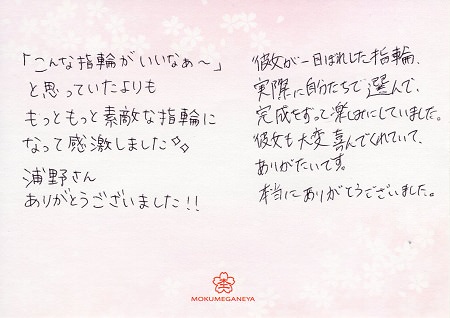 「こんな指輪がいいなぁ～」
と思っていたよりも
もっともっと素敵な指輪に
なって感激しました
浦野さん
ありがとうございました!!
彼女が一目ぼれした指輪、
実際に自分たちで選んで、
完成をずっと楽しみにしていました。
彼女も大変喜んでくれていて、
ありがたいです。
本当にありがとうございました。
MOKUMEGANEYA